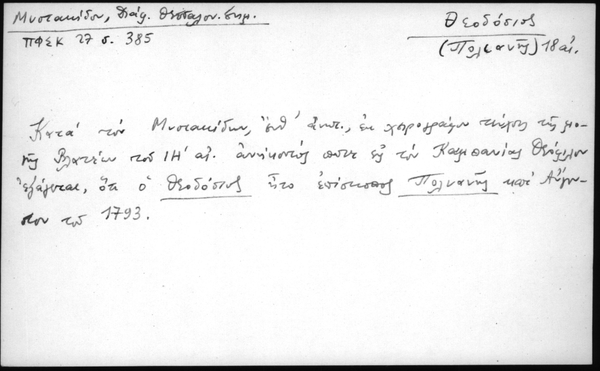 Μυστακίδου, Διάφ. Θεσσαλον. Σημ.
ΠΦΣΚ 27 σ. 385
Θεοδόσιος
(Πολυανῆς) 18 αἰ.
Κατά τόν Μυστακίδην, ἔνθ' ἀνωτ., ἐκ χειρογράφου τεύχους τῆς μο-
νῆς Βλατέων τοῦ ΙΗ' αἰ. ἀνήκοντός ποτε εἰς τόν Καμπανίας Θεόφιλον
ἐξάγεται, ὅτι ὁ Θεοδόσιος ἦτο ἐπίσκοπος Πολυανῆς κατ' Αὔγου-
στον τοῦ 1793.